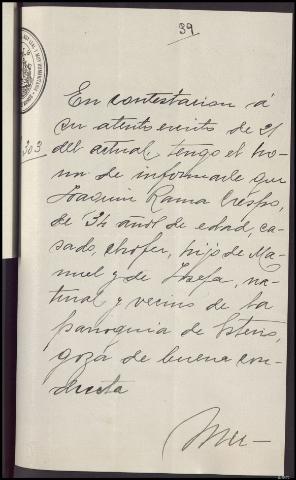 39
En contestacion á
su atento escrito de 21
303
del actual, tengo el ho-
nor de informarle que
Joaquin Rama Crespo,
de 34 años de edad, ca-
sado, chofer, hijo de Ma-
nuel y de Josefa, na-
tural y vecino de la
parroquia de
goza de buena con-
ducta